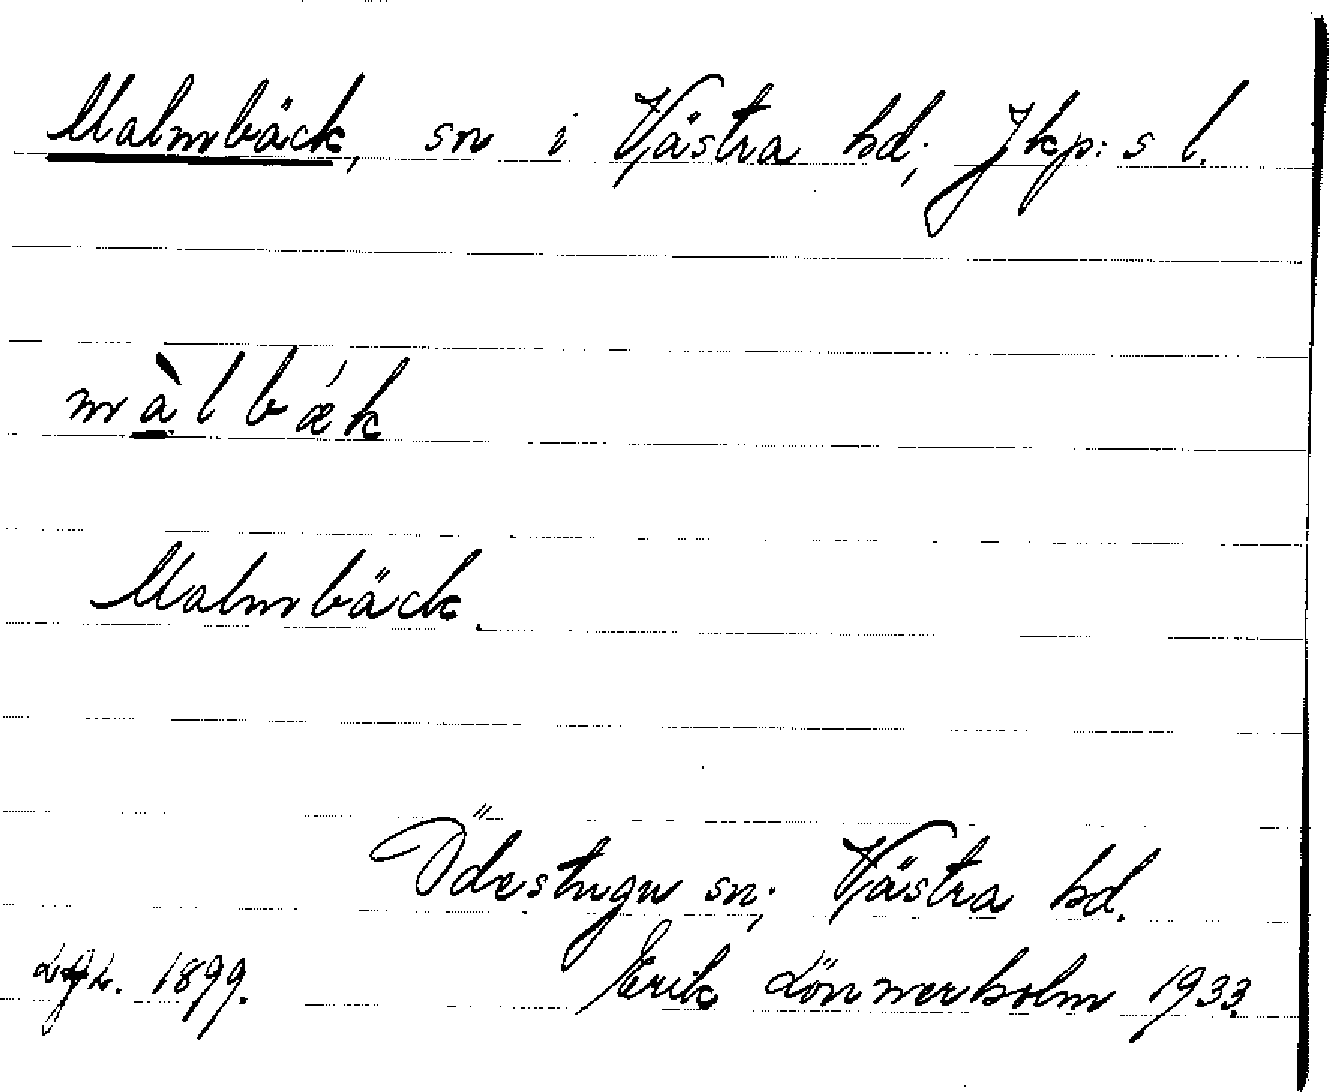 Malmbäck, sn i Västra hd; Jkp:s l.
m à l b ǽ k
Malmbäck.
Ödestugu sn; Västra hd.
1899. Erik Lönnerholm 1933.